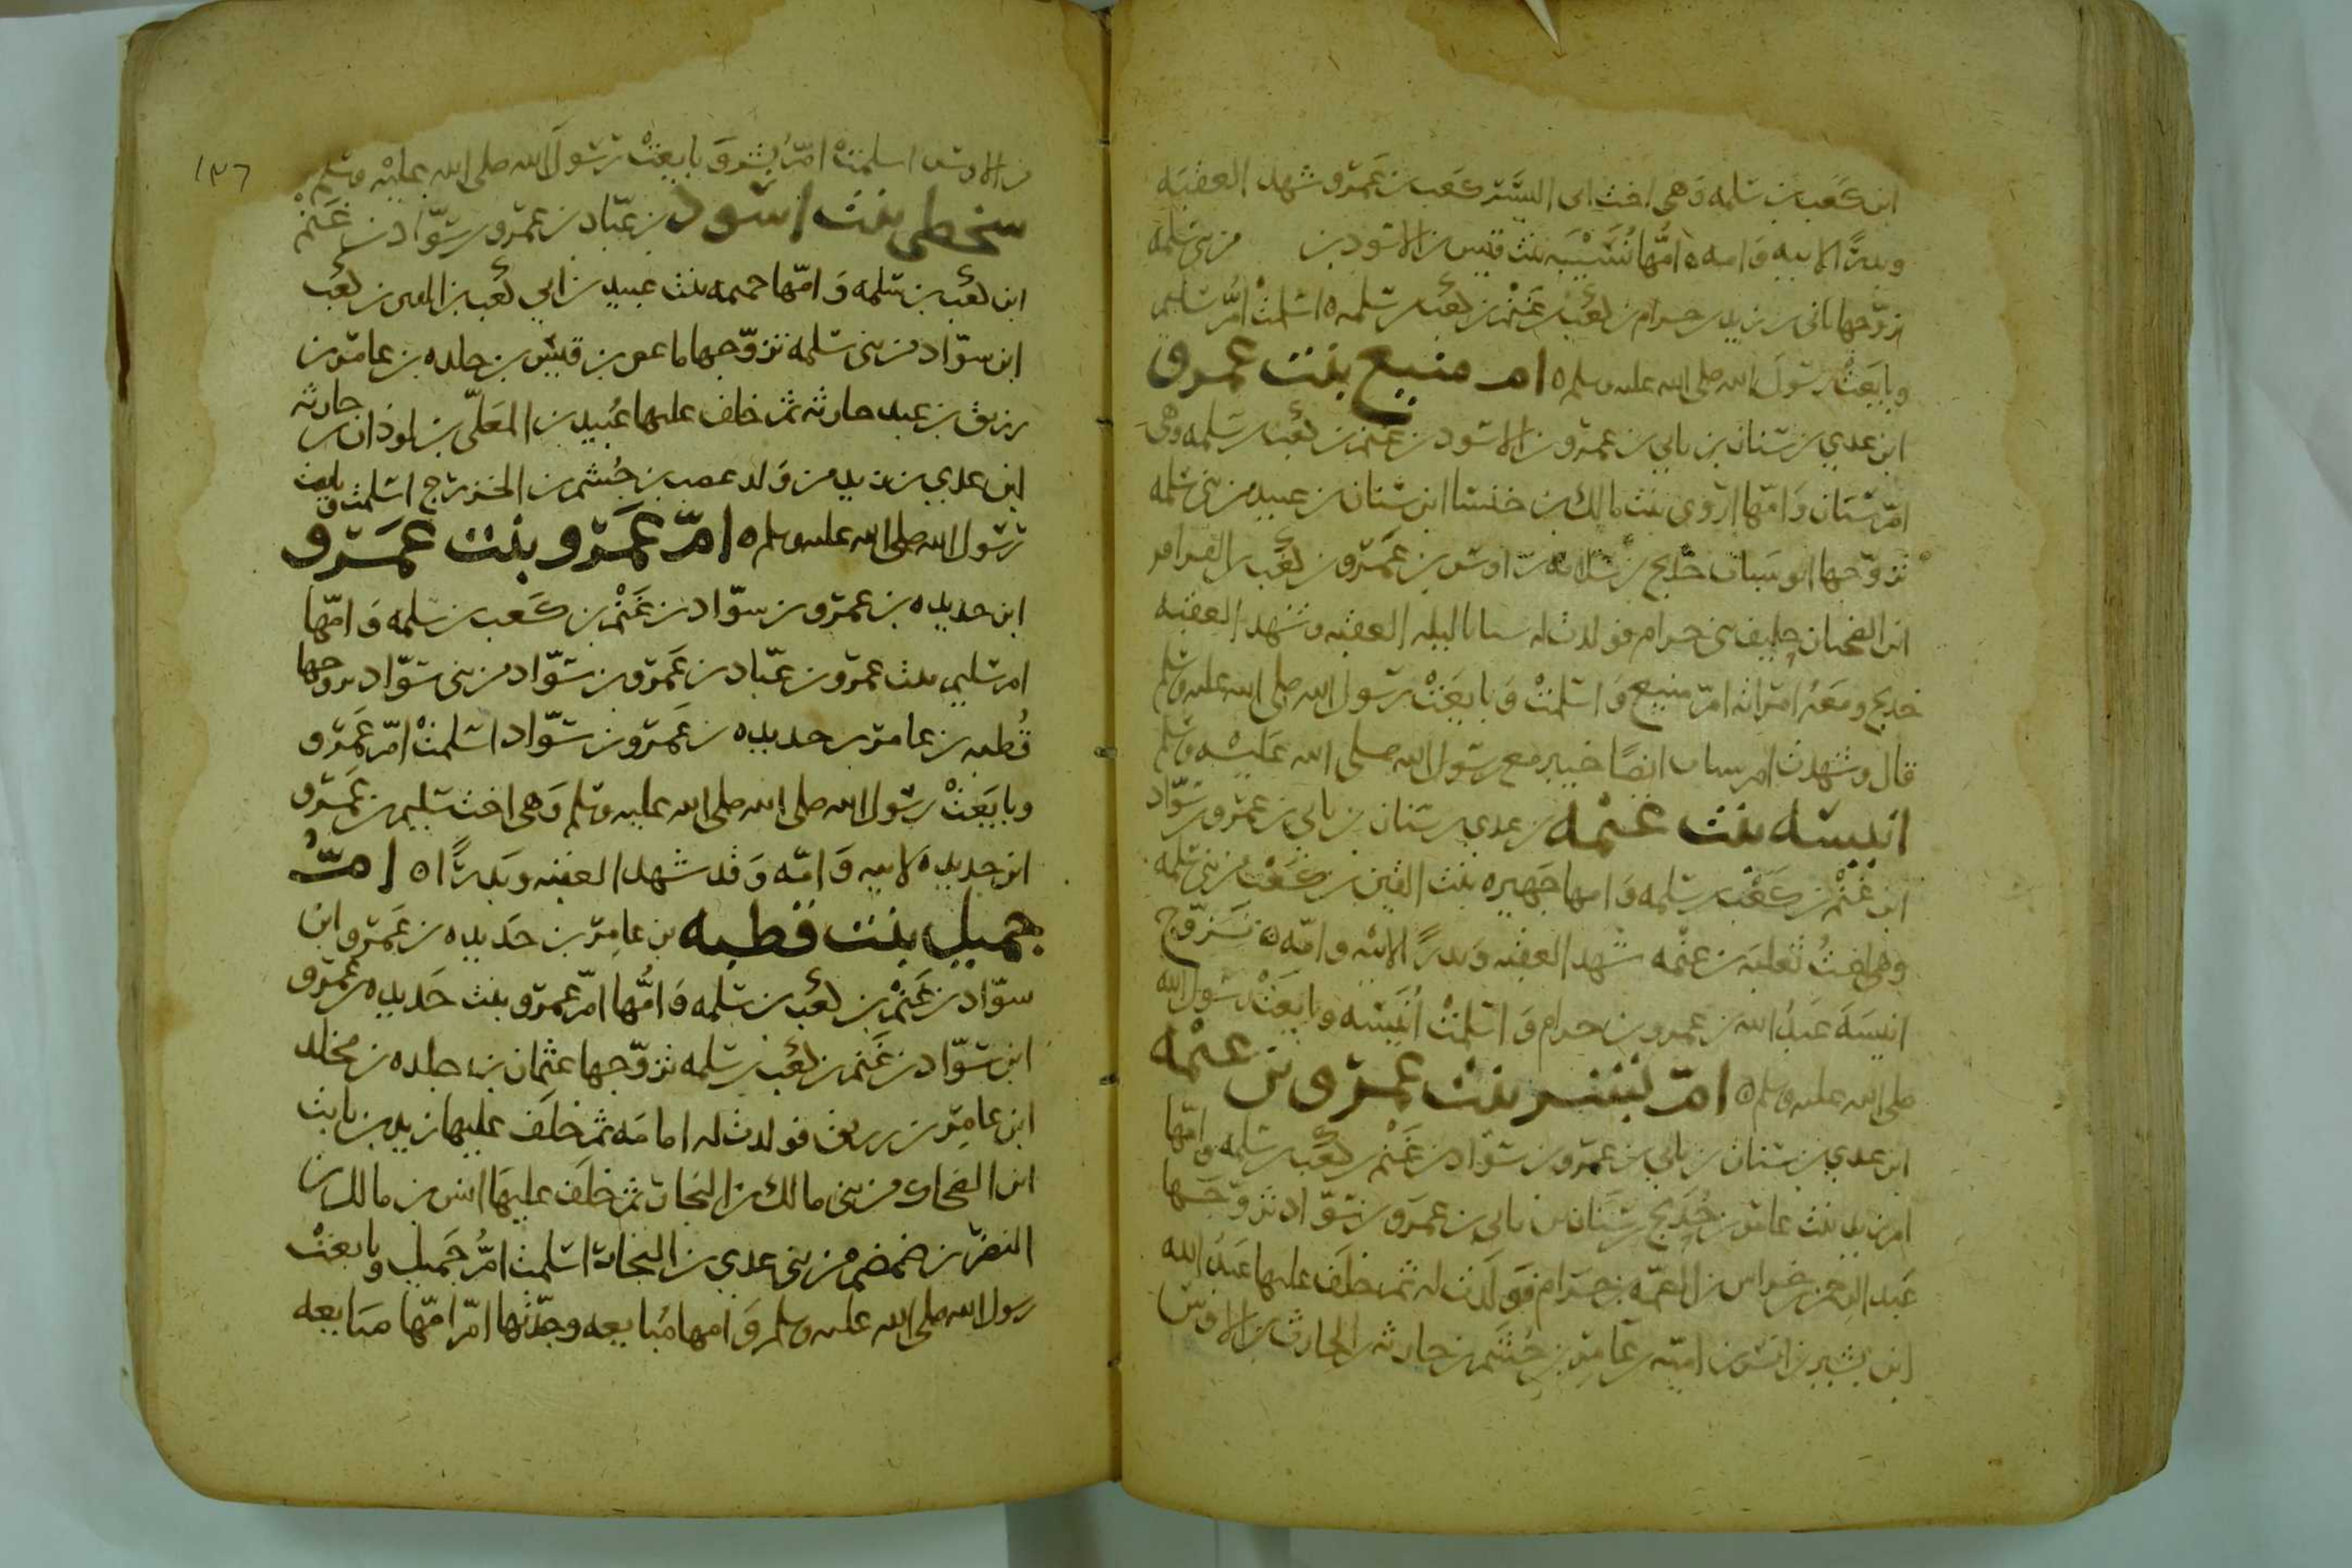 ابن كعب بن سلمه وهى اخت ابى اليسر كعب بن عمرو شهد العقبه
وبدرًا لابيه وامه ٥ امّها نُسَيْبَه بنت قيس بن الاسود بن من بنى سلمه
تزوّجها نابى بن زيد بن حرام بن كعب بن غَنْم بن كعب بن سلمه ٥ اسلمتْ امّ سليم
وبايَعَتْ رسولَ الله صلى الله عليه وسلم ٥ ام منيع بنت عمرو
ابن عدي بن سنان بن نابي بن عمرو بن الاسود بن غنم بن كعب بن سلمه وهى
امّ سنان وَامّها اروى بنت مالك بن خنسا ابن سنان بن عبيد من بنى سلمه
تزوّجها ابو شباث خَدِيج بن سلامه بن اوس بن عَمرو بن كعب بن القراقر
ابن الضحيان حليف بنى حرام فولدت له شباثا ليله العقبه وشهد العقبه
خديج ومعَهُ امراته امّ منيع وَاسلمتْ وَبايعَتْ رسول الله صلى الله عليه وسلم
قال وشهدت ام شباث ايضًا خيبر مع رسول الله صلى الله عَلَيْه وسلم
انيسه بنت غنمه بن عدي بن سنان بن نابي بن عمرو بن سَوّاد
ابن غَنْم بن كعْب بن سلمه وَامها جَهيره بنت القين بن كَعْب من بنى سلمه
وهى اختُ ثعلبَه بن غنمه شهد العقبه وَبدرًا لابيه وامّه ٥ تَزوّج
انيسَةَ عَبْدُ الله بن عمرو بن حرام وَاسلمتْ اُنَيْسَه وبايَعَتْ رسول الله
صلى الله عليه وسلم ٥ امّ بشر بنت عمرو بن غنْمه
ابن عدي بن سنان بن نابي بن عمرو بن سوّاد بن غَنْم بن كعب بن سلمه وامّها
ام زيد بنت عامر بن خُدَيج بن سنَان بن نابي بن عمرو بن سَوّاد تزوّجَها
عَبد الرحمن بن خراش بن الصمّه بن حرَام فَوَلَدت له ثم خلَف عليها عَبْدُ الله
ابن بشير بن انس بن اميّه بن عَامِر بن جُشَم بن حارثه بن الحارث بن الاوس
١٣٦
من الاوس اسلمتْ امّ بِشر وَبايعَتْ رسول الله صلى الله عليْه وسلم
سخطى بنت اسود بن عبّاد بن عمرو بن سَوّاد بن غَنْم
ابن كعب بن سلمه وَامّها حميمه بنت عبيد بن ابي كعب بن القين بن كعب
ابن سوّاد من بنى سلمه تزوّجها ماعص بن قيس بن خلده بن عامر بن
زريق بن عبد حارثه ثم خلف عليها عُبيد بن المعَلّى بن لوذان بن حارثه
ابن عدي بن زيد من وَلد غضب بن جُشم بن الخزرج اسلمت وبايعت
رسول الله صلى الله عليه وسلم ٥ امّ عَمَرو بنت عمَرو
ابن حديده بن عمرو بن سوّاد بن غَنْم بن كَعب بن سلمه وَامّها
ام سليم بنت عمرو بن عبّاد بن عَمرو بن سَوّاد من بنى سَوّاد تزوجها
قُطبه بن عامر بن حديده بن عَمرو بن سَوّاد اسلمتْ امّ عَمرو
وبايَعَتْ رسول الله صلى الله صلى الله عليه وسلم وَهى اخت سليم بن عَمرو
ابن حديده لابيه وَامّه وَقد شهد العقبه وبَدرًا ٥ امّ
جميل بنت قطبه بن عامِر بن حَديده بن عَمرو ابن
سوّاد بن غَنْم بن كعب بن سلمه وَامُّها امّ عمرو بنت حَديده بن عمرو
ابن سَوّاد بن غَنم بن كعب بن سلمه تزوّجها عثمان بن خلده بن مخلد
ابن عامِر بن زريق فولدت له امامَه ثم خلَف عليها زيد بن ثابت
ابن الضحاك من بنى مالك بن النجار ثم خلَف عليهَا انس بن مالك بن
النضر بن ضمضم من بنى عدي بن النجار اسلمت امُّ جَميل وبايعتْ
رسول الله صلى الله عليه وسلم وَامها مُبايعه وجدّتها امّ امّها مبَايعه